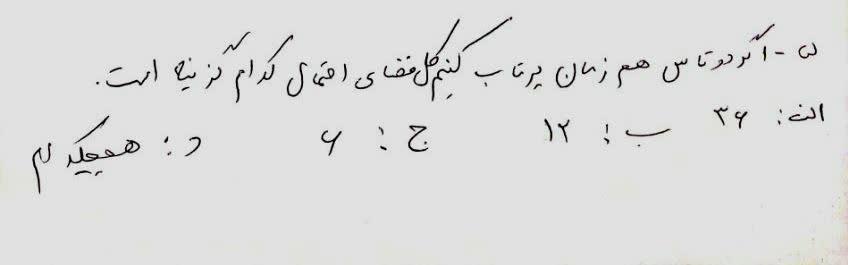 س - اگر دو تاس هم زمان پرتاب کنیم کل فضای احتمال کدام گزینه است.
الف: ۳۶ ب: ۱۲ ج: ۶ د: هیچکدام